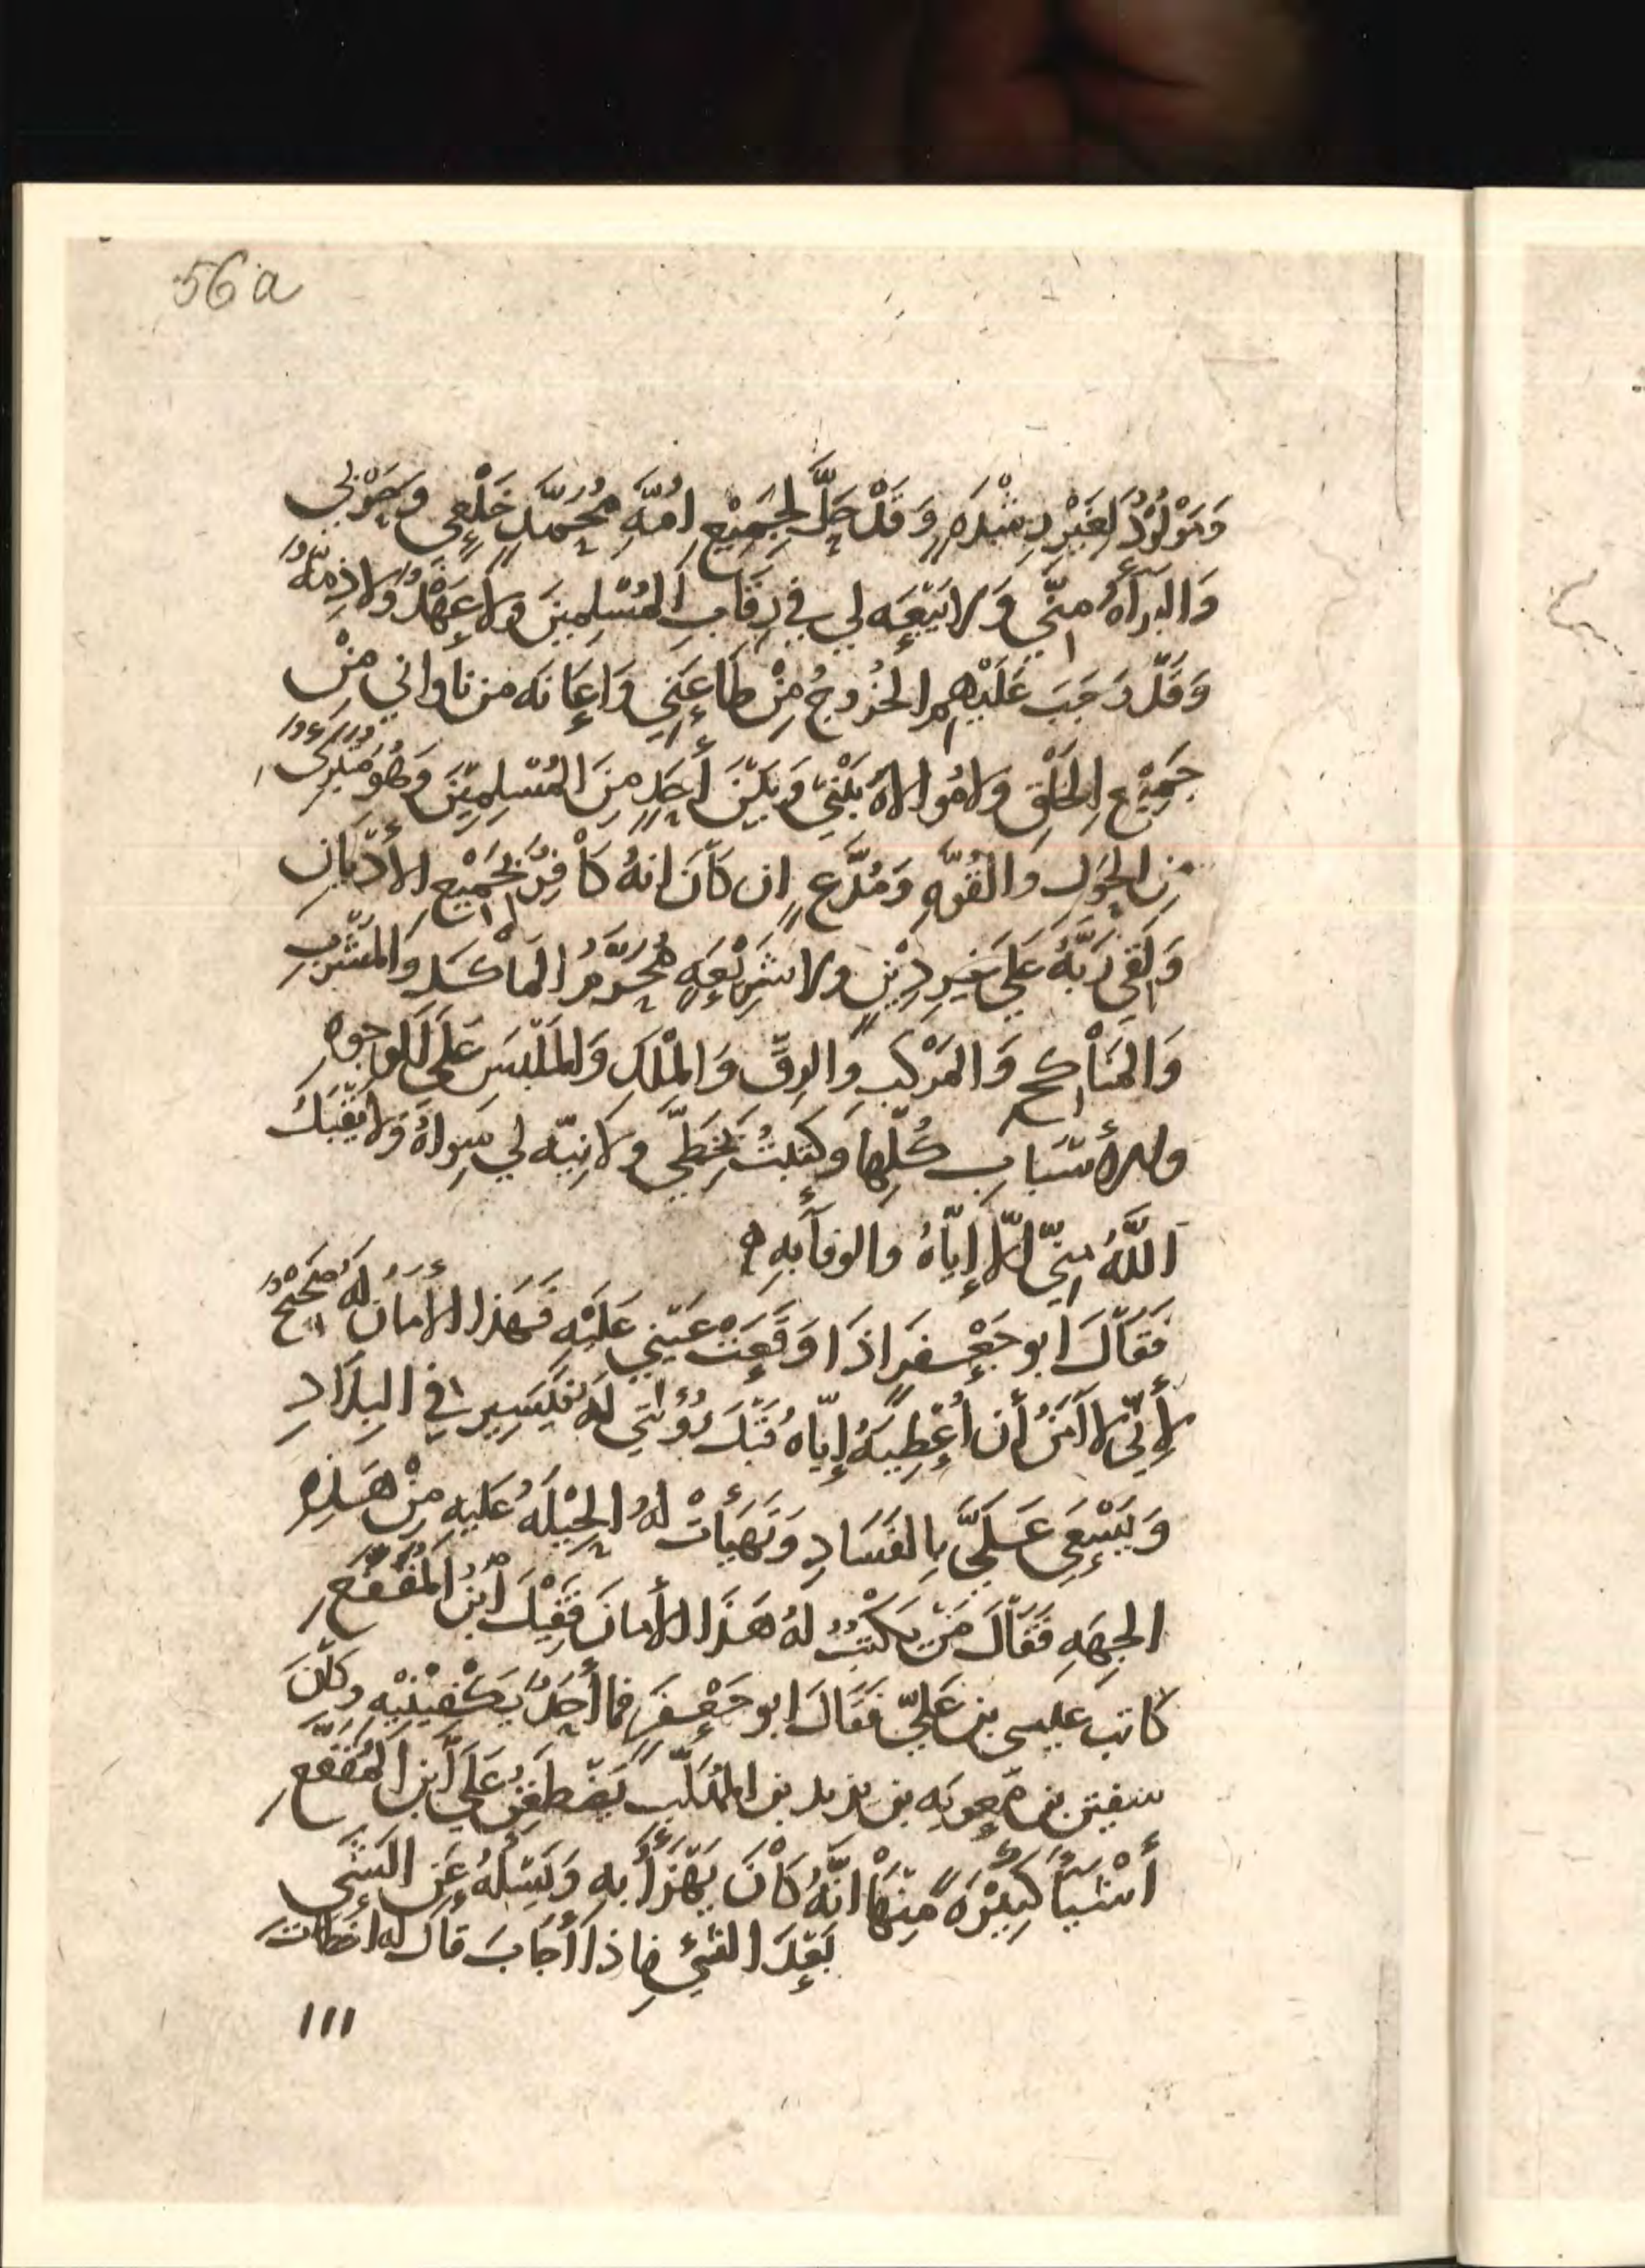 56a
وَمَوْلُوْدٌ لِغَيْرِ رِشْدَهٍ وَقَدْ حَلَّ لِجَمِيْعِ امُّهِ مُحَمَّدٍ خَلْعِي وَحَرْبي
وَالبَراَءَهُ مِنّي وَلا بَيْعَه لي في رِقَابِ المُسْلِمِينَ وَلا عَهْدٌ وَلا ذِمّهٌ
وَقَدْ وَجَبَ عَلَيْهِمُ الخُرُوجُ مِنْ طَاعَتِي وَاِعَانَه من نَاوَاني مِنْ
جَمِيْعِ الخَلْقِ وَلا مُوالاهَ بَيْنِي وَبَيْنَ أَحَدٍ مِنَ المُسْلِمِيْنَ وَهُوَ مُتَبَرِّئٌ
مِن الحَوْلِ وَالقُوَّهِ وَمُدَّعٍ ان كَانَ انهُ كَافِرٌ بِجَمِيْعِ الأَدْيَانِ
وَلَقِيَ رَبَّهُ عَلَي غَيرِ دِيْنٍ ولا شَرِيْعَهٍ مُحَرَّمُ المَاْكَلِ وَالمَشْرَبِ
وَالمَنَاْكحِ وَالمَرْكَبِ وَالرِقِّ وَالمِلْكِ وَالمَلْبَسِ عَلَي الوجوهِ
والأَسْبَابِ كُلِّهَا وَكَتَبْتُ بِخَطِّي ولا نِيّه لي سِواهُ وَلا يَقْبَلُ
اَللَّهُ مِنّي اِلاّ إِيّاهُ والوفآَ بِهِ ه
فَقَالَ ابو جَعْفَرٍ اذَا وَقَعَتْ عَيْني عَلَيْهِ فَهَذا الأَمَانُ لهُ صَحِيْحٌ
لأَنّي لا آمَنُ أن أُعْطِيَهُ إِيّاهُ قَبْلَ رُؤْيَتِي لَهُ فَيَسِير في البِلاَدِ
وَيَسْعَي عَلَيَّ بِالفَسَادِ وَتَهَيَّأَتْ لهُ الحِيْلَهُ عَلَيهِ مِنْ هَذِهِ
الجِهَهِ فَقَالَ مَنْ يَكْتُبُ لهُ هَذَا الأمانَ فَقِيْلَ ابْنُ المُقَفَّعِ
كَاتب عيسى بن عَليّ فَقَالَ ابو جَعْفَرٍ فما أَحَدٌ يَكْفِيْنِيْهِ وكَانَ
سفين بن معويه بن يزيد بن المُهَلَّبِ يَضْطَغِنُ عَلَي ابن المُقَفَّعِ
أَشْيَاَءَ كَثِيْرَهً مِنْهَا انَّهُ كَانَ يَهْزَأُ بِهِ وَيَسْئلُهُ عَنِ الشَي
بَعْدَ الشَيْءِ فاذا أَجَابَ قال له اخطَات
١١١